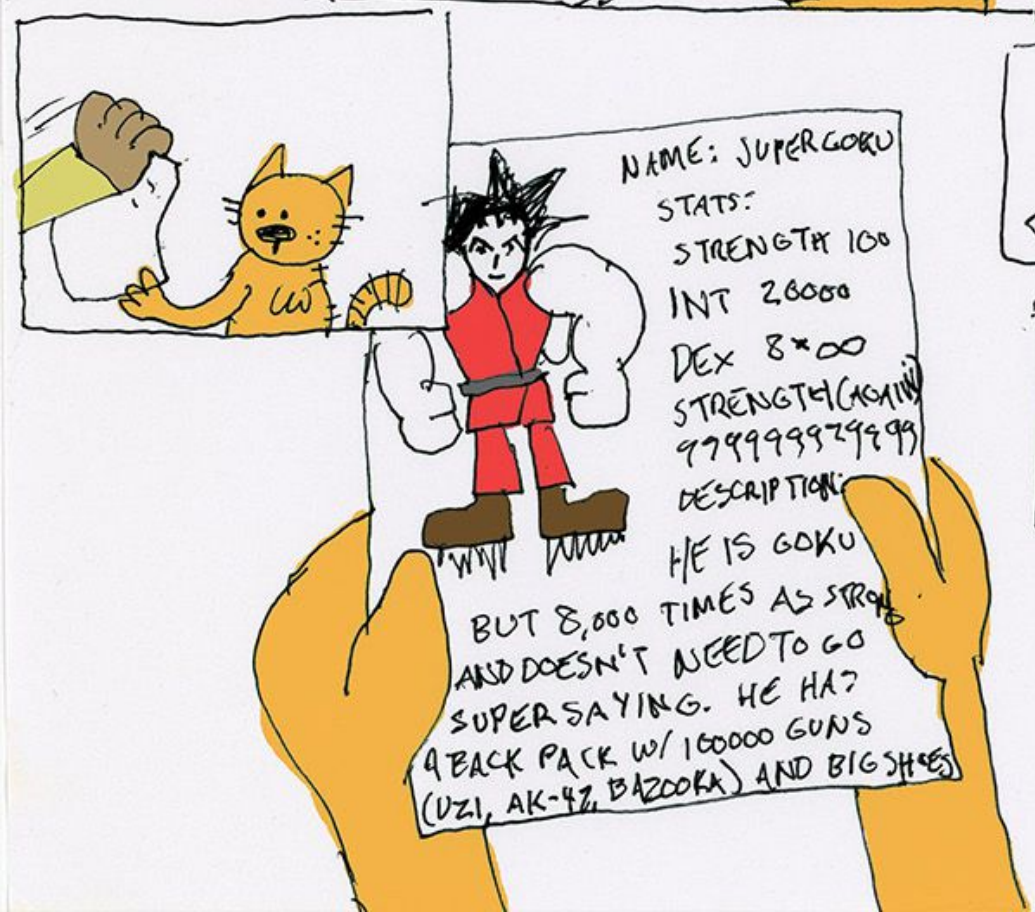 NAME: SUPERGOKU
STATS:
STRENGTH 100
INT 20000
DEX 8*00
STRENGTH (AGAIN)
999999999999
DESCRIPTION:
HE IS GOKU
BUT 8,000 TIMES AS STRONG
AND DOESN'T NEED TO GO
SUPERSAYING. HE HAS
A BACK PACK W/ 100000 GUNS
(UZI, AK-47, BAZOOKA) AND BIG SHOES